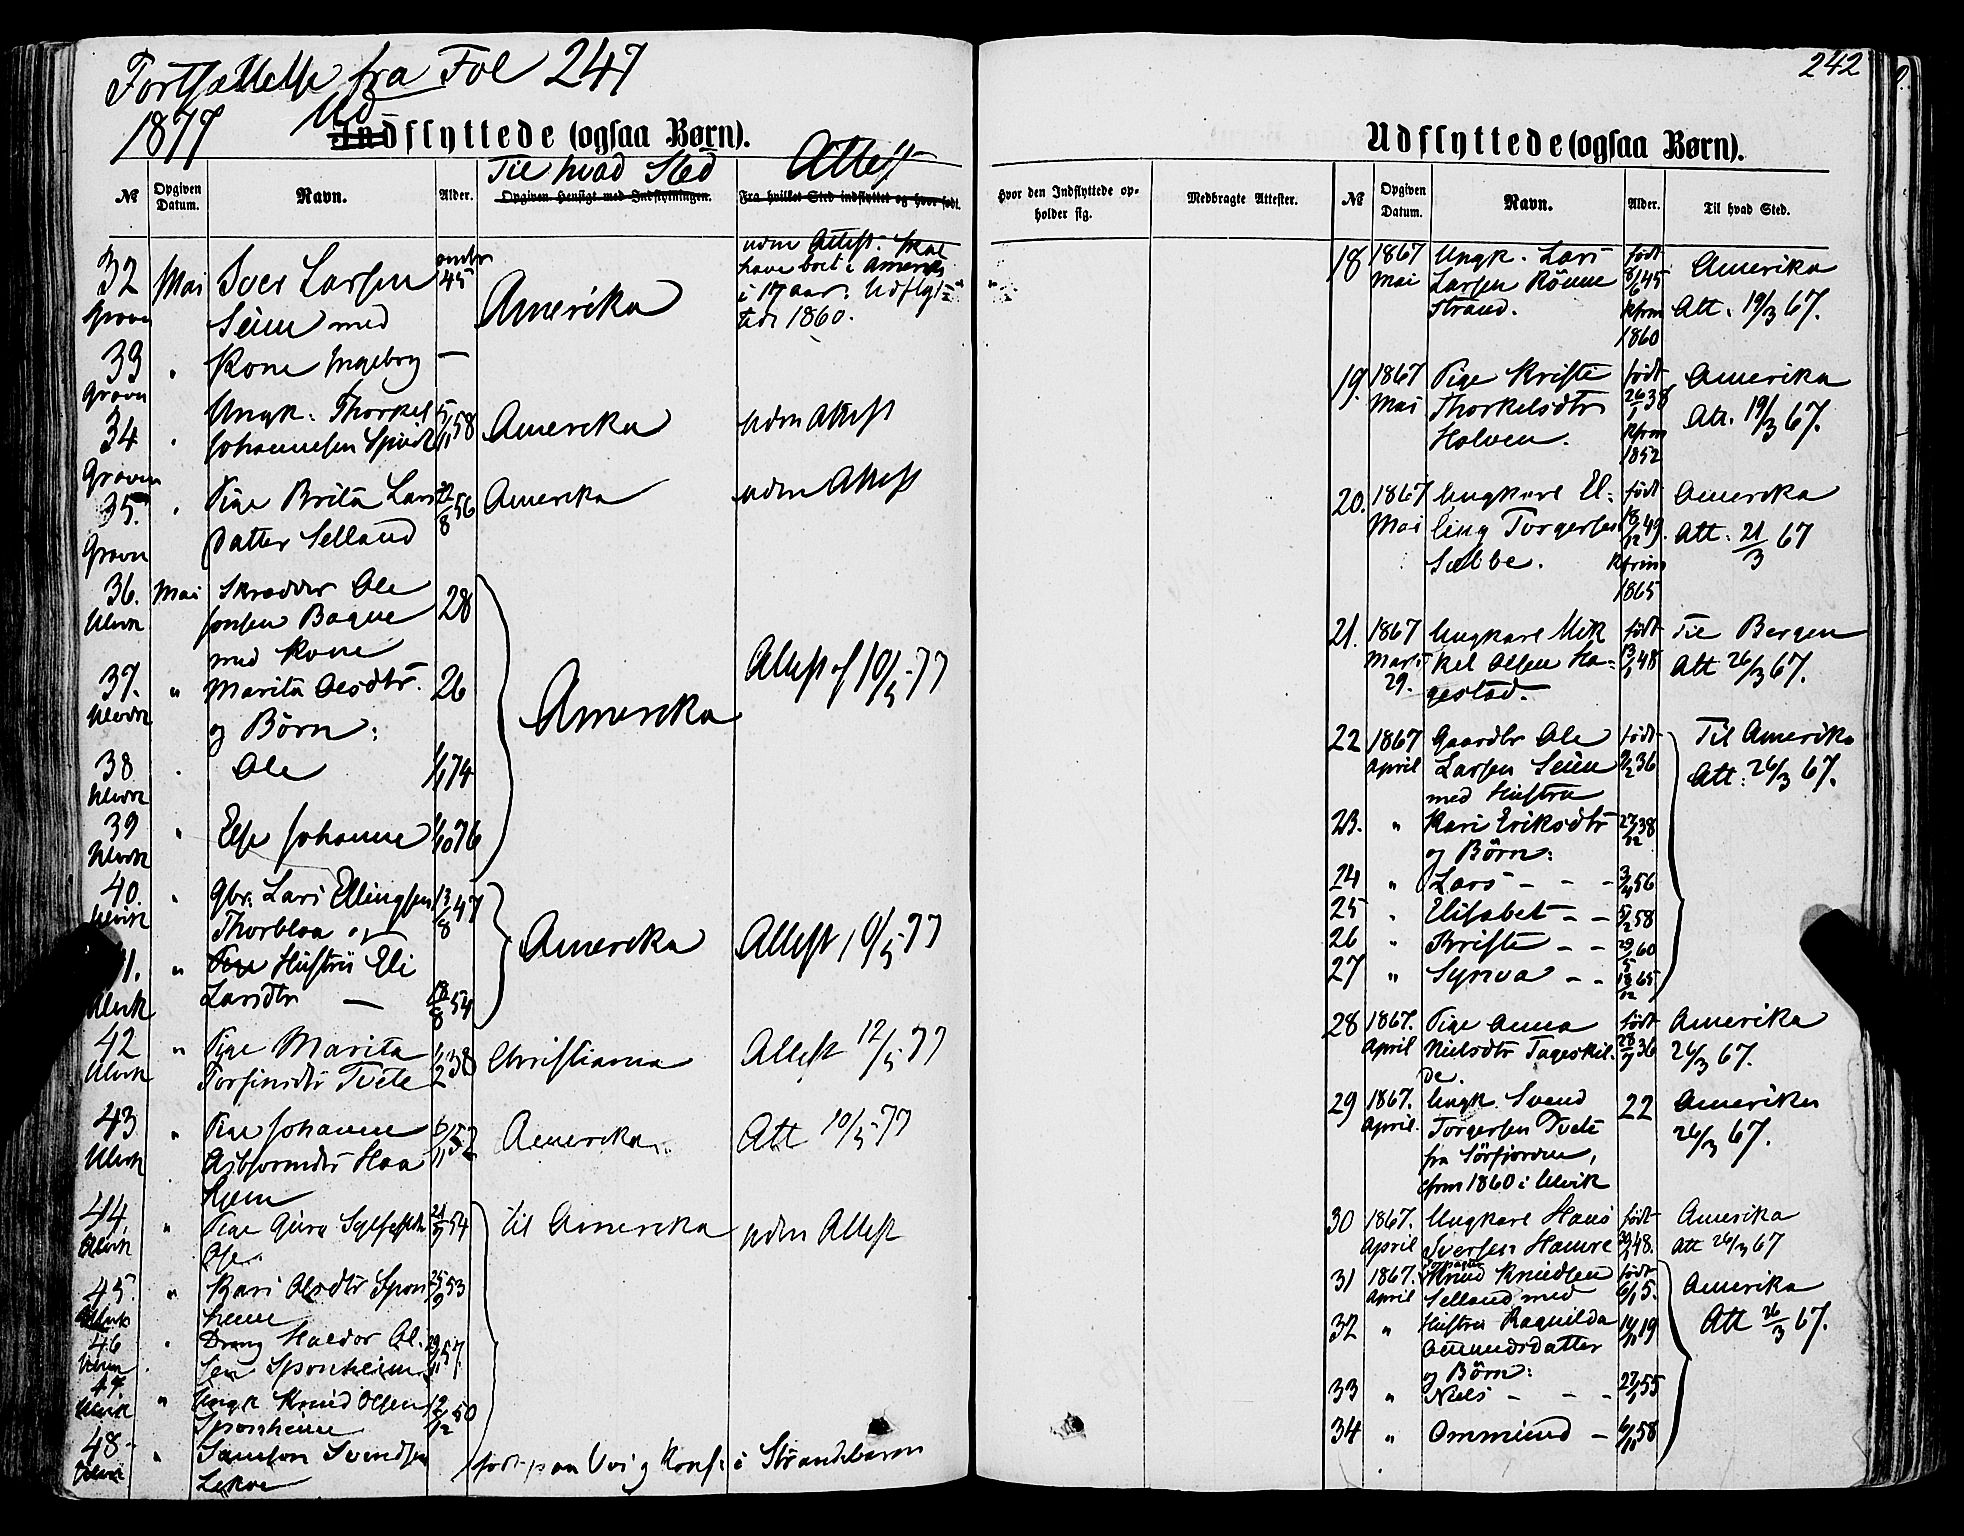 Fortsættelse fra Fol 247
1877
Ud
Indflyttede (ogsaa Børn).
Til hvad Sted
Attest
№
Opgiven Datum.
Navn.
Alder.
Opgiven Hensigt med Indflytningen.
Fra hvilket Sted indflyttet og hvor født.
32 Mai Iver Larsen 45
Graven Seim med Amerika
uden Attest. Skal
have boet i Amerika
i 17 aar. Udflyt
1860.
33 " Kone Ingeborg —
Graven
34 " Ungk. Thorkel 58 Amerika uden Attest
Johannesen
Graven
35. " Pige Brita Lars 22/8 56 Amerika uden Attest
Graven datter Selland
36. Mai Skrædder Ole 28
Ulvik Jonsen Bagne
med Kone
37. " Marita Olsdtr. 26 Amerika Attest af 10/5 77
Ulvik og Børn:
38 " Ole 74
Ulvik
39 " Else Johanne 76
Ulvik
40. " Gbr. Lars Ellingsen 13/8 47
Ulvik Thorbloa og Amerika Attest 10/5 77
41. " Hustru Eli
Ulvik Larsdtr — 18/8 54
42 " Pige Marita 38 Christiania Attest 12/5 77
Ulvik Torfinsdtr Tvete
43 " Pige Johanne 6/11 52 Amerika Att 10/5 77
Ulvik Asbjornsdtr Haa
heim
44. " Pige Guro 54 til Amerika uden Attest
Ulvik
45. " Kari Olsdtr Spon 25/9 53
Ulvik heim
46 " Dreng Haldor Ol- 57.
sen Sponheim
47 " Ungk Knud Olsen 50
Ulvik Sponheim
48- " Samson Svendsen
Ulvik Lekve
født paa Voss og Konf. i Strandebarm
242
Udflyttede (ogsaa Børn).
Hvor den Indflyttede opholder sig.
Medbragte Attester.
№
Opgiven Datum.
Navn.
Alder.
Til hvad Sted.
18 1867 Ungk. Lars født Amerika
Mai Larsen Rönne 8/6 45
Strand. Kfirm Att. 19/3 67.
1860
19. 1867 Pige Kristi født Amerika
Mai Thorkelsdtr 26/1 38 Att. 19/3 67.
Holven. Kfirm
1852
20. 1867 Ungkarl El- født Amerika
Mai ling Torgersen 18/12 49. Att. 21/3 67
Sæbbe. Kfirm
1865
21. 1867 Ungkarl Mik født Til Bergen
Marts kel Olsen Ha- 48 Att 26/3 67.
29. gestad.
22 1867 Gaardbr Ole født Til Amerika
April Larsen Seim 36 Att: 26/3 67.
med Hustru
23. " Kari Eriksdtr 27/12 38
og Børn:
24 " Lars - - - 3/4 56
25 " Elisabet - - 5/2 58
26 " Kristi - - 29/5 60
27 " Synva - - 13/12 65
28 1867. Pige Anna født Amerika
April Nielsdtr Tageskil- 36 26/3 67.
de.
29 1867. Ungk. Svend 22 Amerika
April. Torgersen Tveit 26/3 67.
fra Sörfjorden,
cfirm 1860 i Ulvik
30 1867. Ungkarl Hans født Amerika
April Iversen Hamre 48. Att 26/3 67
31 1867. Knud Knudsen født Amerika
April Selland med 15. Att 26/3 67.
32 " Hustru Ragnilda 19
Amundsdatter
og Børn:
33 " Niels - - - 55
34 " Ommund - 58